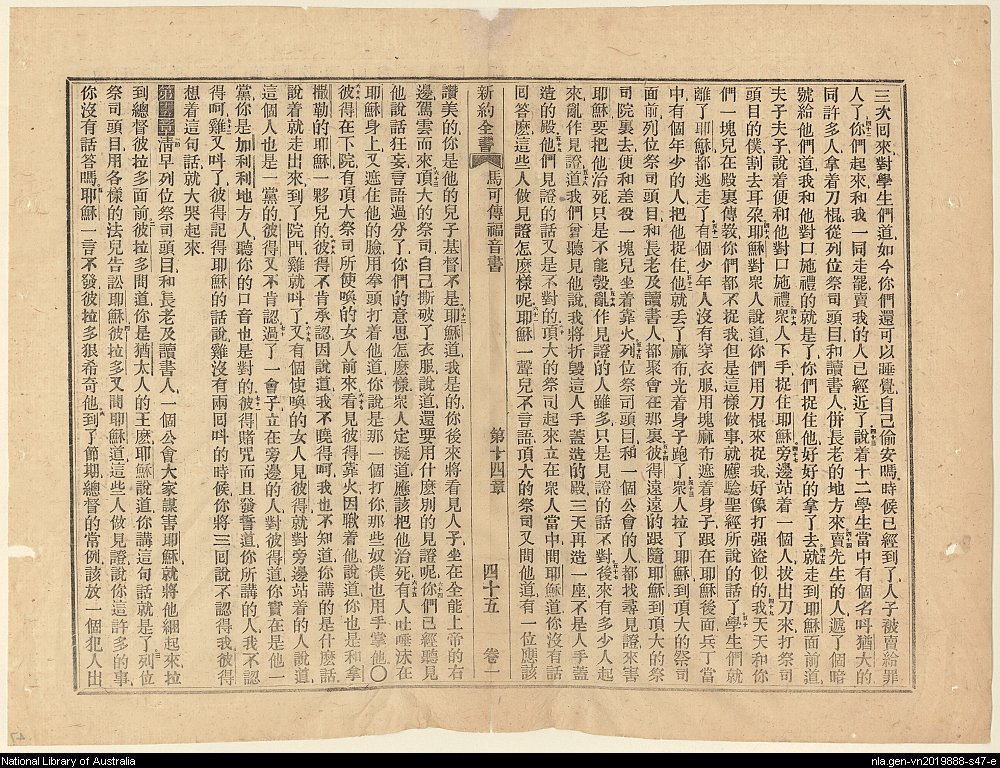 三次回來對學生們道如今你們還可以睡覺自己偷安嗎時候已經到了人子被賣給罪
人了你們起來和我一同走罷賣我的人已經近了說着十二學生當中有個名叫猶大的
同許多人拿着刀棍從列位祭司頭目和讀書人併長老的地方來賣先生的人遞了個暗
號給他們道我和他對口施禮的就是了你們捉住他好好的拿了去就走到耶穌面前道
夫子夫子說着便和他對口施禮衆人下手捉住耶穌旁邊站着一個人拔出刀來打祭司
頭目的僕割去耳朶耶穌對衆人說道你們用刀棍來捉我好像打强盜似的我天天和你
們一塊兒在殿裏傳敎你們都不捉我但是這樣做事就應驗聖經所說的話了學生們就
離了耶穌都逃走了有個少年人沒有穿衣服用塊麻布遮着身子跟在耶穌後面兵丁當
中有個年少的人把他捉住他就丢了麻布光着身子跑了衆人拉了耶穌到頂大的祭司
面前列位祭司頭目和長老及讀書人都聚會在那裏彼得遠遠的跟隨耶穌到頂大的祭
司院裏去便和差役一塊兒坐着靠火列位祭司頭目和一個公會的人都找尋見證來害
耶穌要把他治死只是不能彀亂作見證的人雖多只是見證的話不對後來有多少人起
來亂作見證道我們曾聽見他說我將折毁這人手蓋造的殿三天再造一座不是人手蓋
造的殿他們見證的話又是不對的頂大的祭司起來立在衆人當中問耶穌道你沒有話
回答麽這些人做見證怎麽樣呢耶穌一聲兒不言語頂大的祭司又問他道有一位應該
新約全書 馬可傳福音書 第十四章 四十五 卷一
讚美的你是他的兒子基督不是耶穌道我是的你後來將看見人子坐在全能上帝的右
邊駕雲而來頂大的祭司自己撕破了衣服說道還要用什麽别的見證呢你們已經聽見
他說話狂妄言語過分了你們的意思怎麽樣衆人定擬道應該把他治死有人吐唾沫在
耶穌身上又遮住他的臉用拳頭打着他道你說是那一個打你那些奴僕也用手掌他〇
彼得在下院有頂大祭司所使喚的女人前來看見彼得靠火因瞅着他說道你也是和拿
撒勒的耶穌一夥兒的彼得不肯承認因說道我不曉得呵我也不知道你講的是什麽話
說着就走出來到了院門雞就呌了又有個使喚的女人見彼得就對旁邊站着的人說道
這個人也是一黨的彼得又不肯認過了一會子立在旁邊的人對彼得道你實在是他一
黨你是加利利地方人聽你的口音也是對的彼得賭咒而且發誓道你所講的人我不認
得呵雞又呌了彼得記得耶穌的話說雞沒有兩回呌的時候你將三回說不認得我彼得
想着這句話就大哭起來
第十五章淸早列位祭司頭目和長老及讀書人一個公會大家謀害耶穌就將他綑起來拉
到總督彼拉多面前彼拉多問道你是猶太人的王麽耶穌說道你講這句話就是了列位
祭司頭目用各樣的法兒告訟耶穌彼拉多又問耶穌道這些人做見證說你這許多的事
你沒有話答嗎耶穌一言不發彼拉多狠希奇他到了節期總督的常例該放一個犯人出
National Library of Australia
nla.gen-vn2019888-s47-e